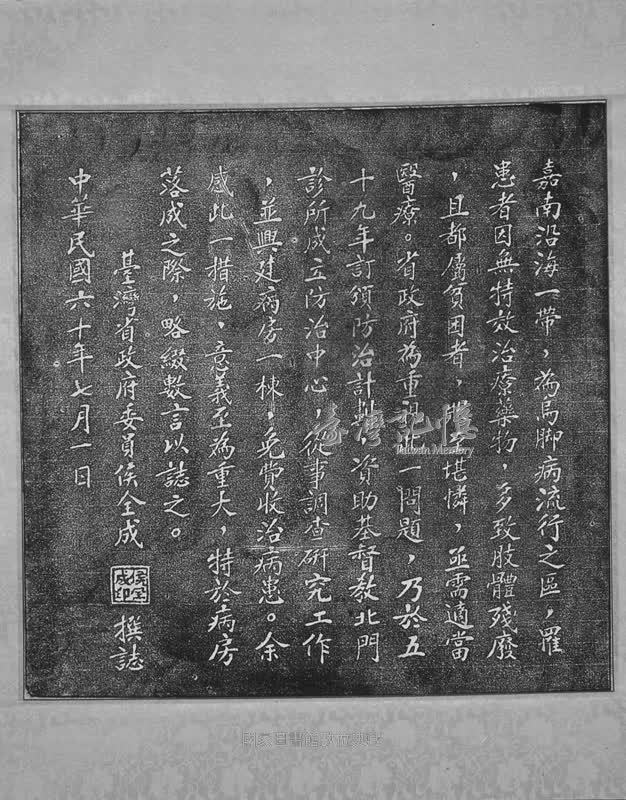 嘉南沿海一帶，為烏脚病流行之區，罹
患者因無特效治療藥物，多致肢體殘廢
，且都屬貧困者，堪憐，亟需適當
醫療。省政府為重視此一問題，乃於五
十九年訂頒防治計劃，資助基督教北門
診所成立防治中心，從事調查研究工作
，並興建病房一棟，免費收治病患。余
感此一措施，意義至為重大，特於病房
落成之際，略綴數言以誌之。
臺灣省政府委員侯全成 撰誌
侯全成印
中華民國六十年七月一日
臺灣記憶
Taiwan Memory